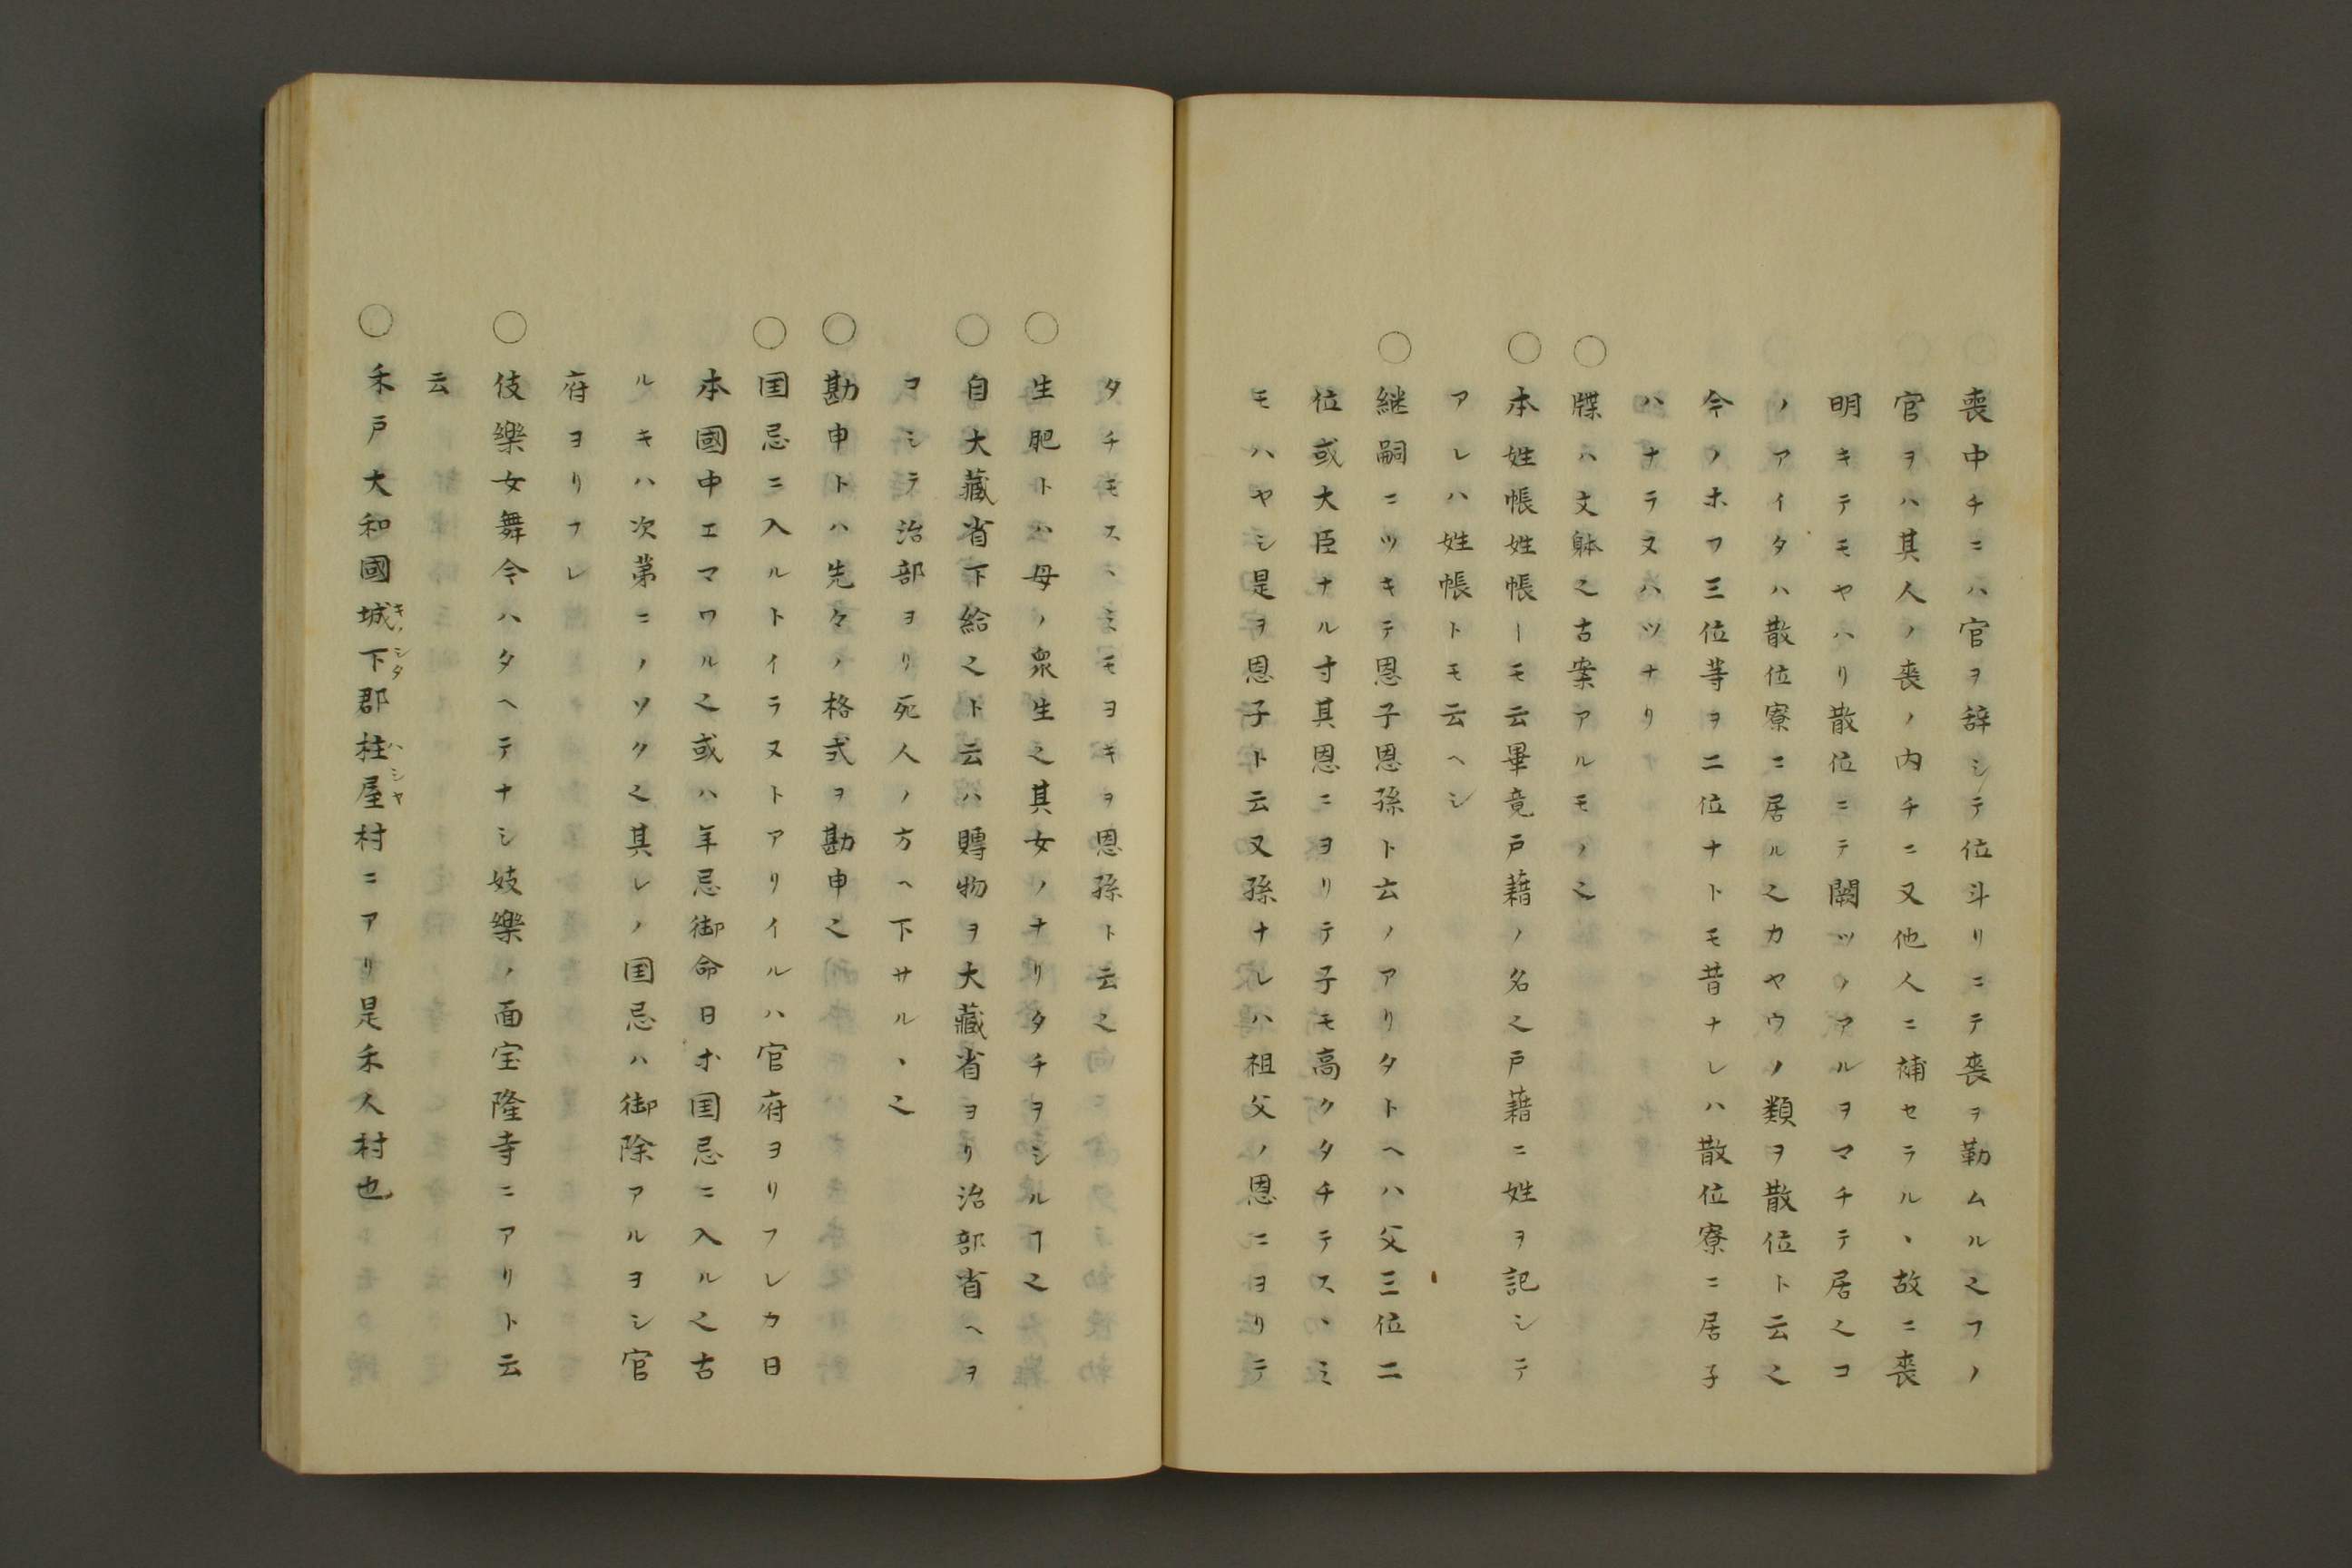 喪中チニハ官ヲ辞シテ位斗リニテ喪ヲ勤ムル之フノ
官ヲハ其人ノ喪ノ内チニ又他人ニ補セラル、故ニ喪
明キテモヤハリ散位ニテ闕ツノアルヲマチテ居之コ
ノアイタハ散位寮ニ居ル之カヤウノ類ヲ散位ト云之
今ノホフ三位等ヲ二位ナトモ昔ナレハ散位寮ニ居子
ハナラヌハツナリ
○牒ハ文躰之古案アルモノ之
○本姓帳姓帳ーモ云畢竟戸藉ノ名之戸藉ニ姓ヲ記シテ
アレハ姓帳トモ云ヘシ
○継嗣ニツキテ恩子恩孫ト云ノアリタトヘハ父三位二
位或大臣ナル寸其恩ニヨリテ子モ高クタチテス、ミ
モハヤシ是ヲ恩子ト云又孫ナレハ祖父ノ恩ニヨリテ
タチモス、ミモヨキヲ恩孫ト云之
○生肥トハ母ノ衆生之其女ノナリタチヲシルヿ之
○自大藏省下給之ト云ハ賻物ヲ大藏省ヨリ治部省ヘヲ
コシテ治部ヨリ死人ノ方ヘ下サル、之
○勘申トハ先々ノ格式ヲ勘申之
○国忌ニ入ルトイラヌトアリイルハ官府ヨリフレカ日
本國中エマワル之或ハ年忌御命日ホ国忌ニ入ル之古
ルキハ次第ニノソク之其レノ国忌ハ御除アルヲシ官
府ヨリフレ
○伎樂女舞今ハタヘテナシ妓樂ノ面宝隆寺ニアリト云
云
○禾戸大和國城下郡柱屋村ニアリ是禾人村也
キノシタ
ハシヤ